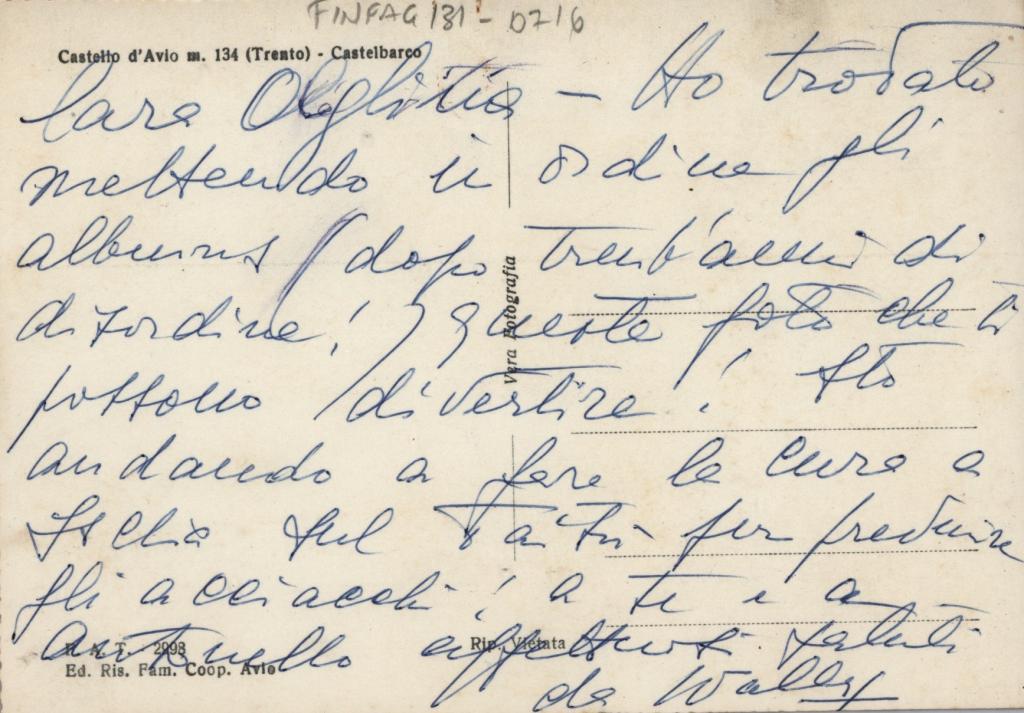 FINFAG 131 - 0716
Castello d'Avio m. 134 (Trento) - Castelbarco
Cara Oglittia - Ho trovato
mettendo in ordine gli
albums (dopo trent'anni di
disordine!) queste foto che ti
possono divertire! Sto
andando a fare le cure a
Ischia sul tardi per prevenire
gli acciacchi! a te e a
Antonello affettuosi saluti
da Wally
Vera Fotografia
R. A. T. - 2093
Rip. Vietata
Ed. Ris. Fam. Coop. Avio